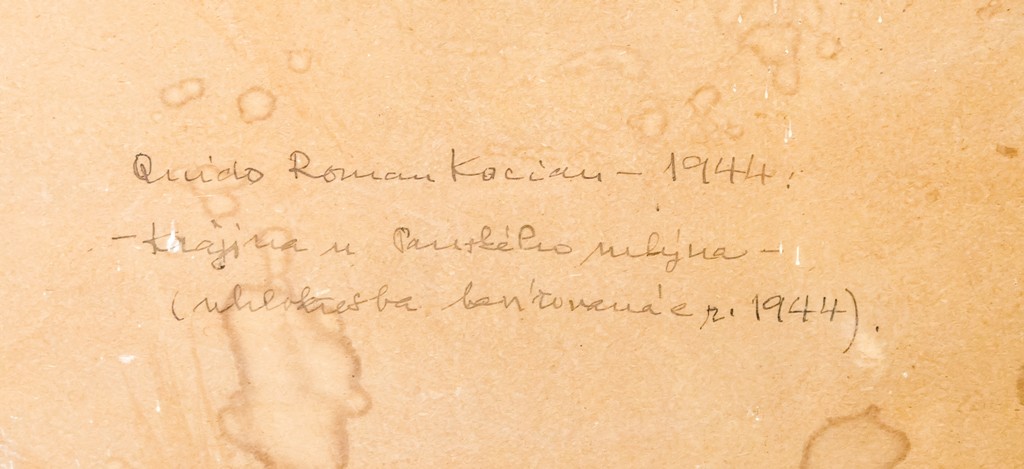 Quido Roman Kocian – 1944:
– Krajina u Panského mlýna –
(uhlokresba z r. 1944).